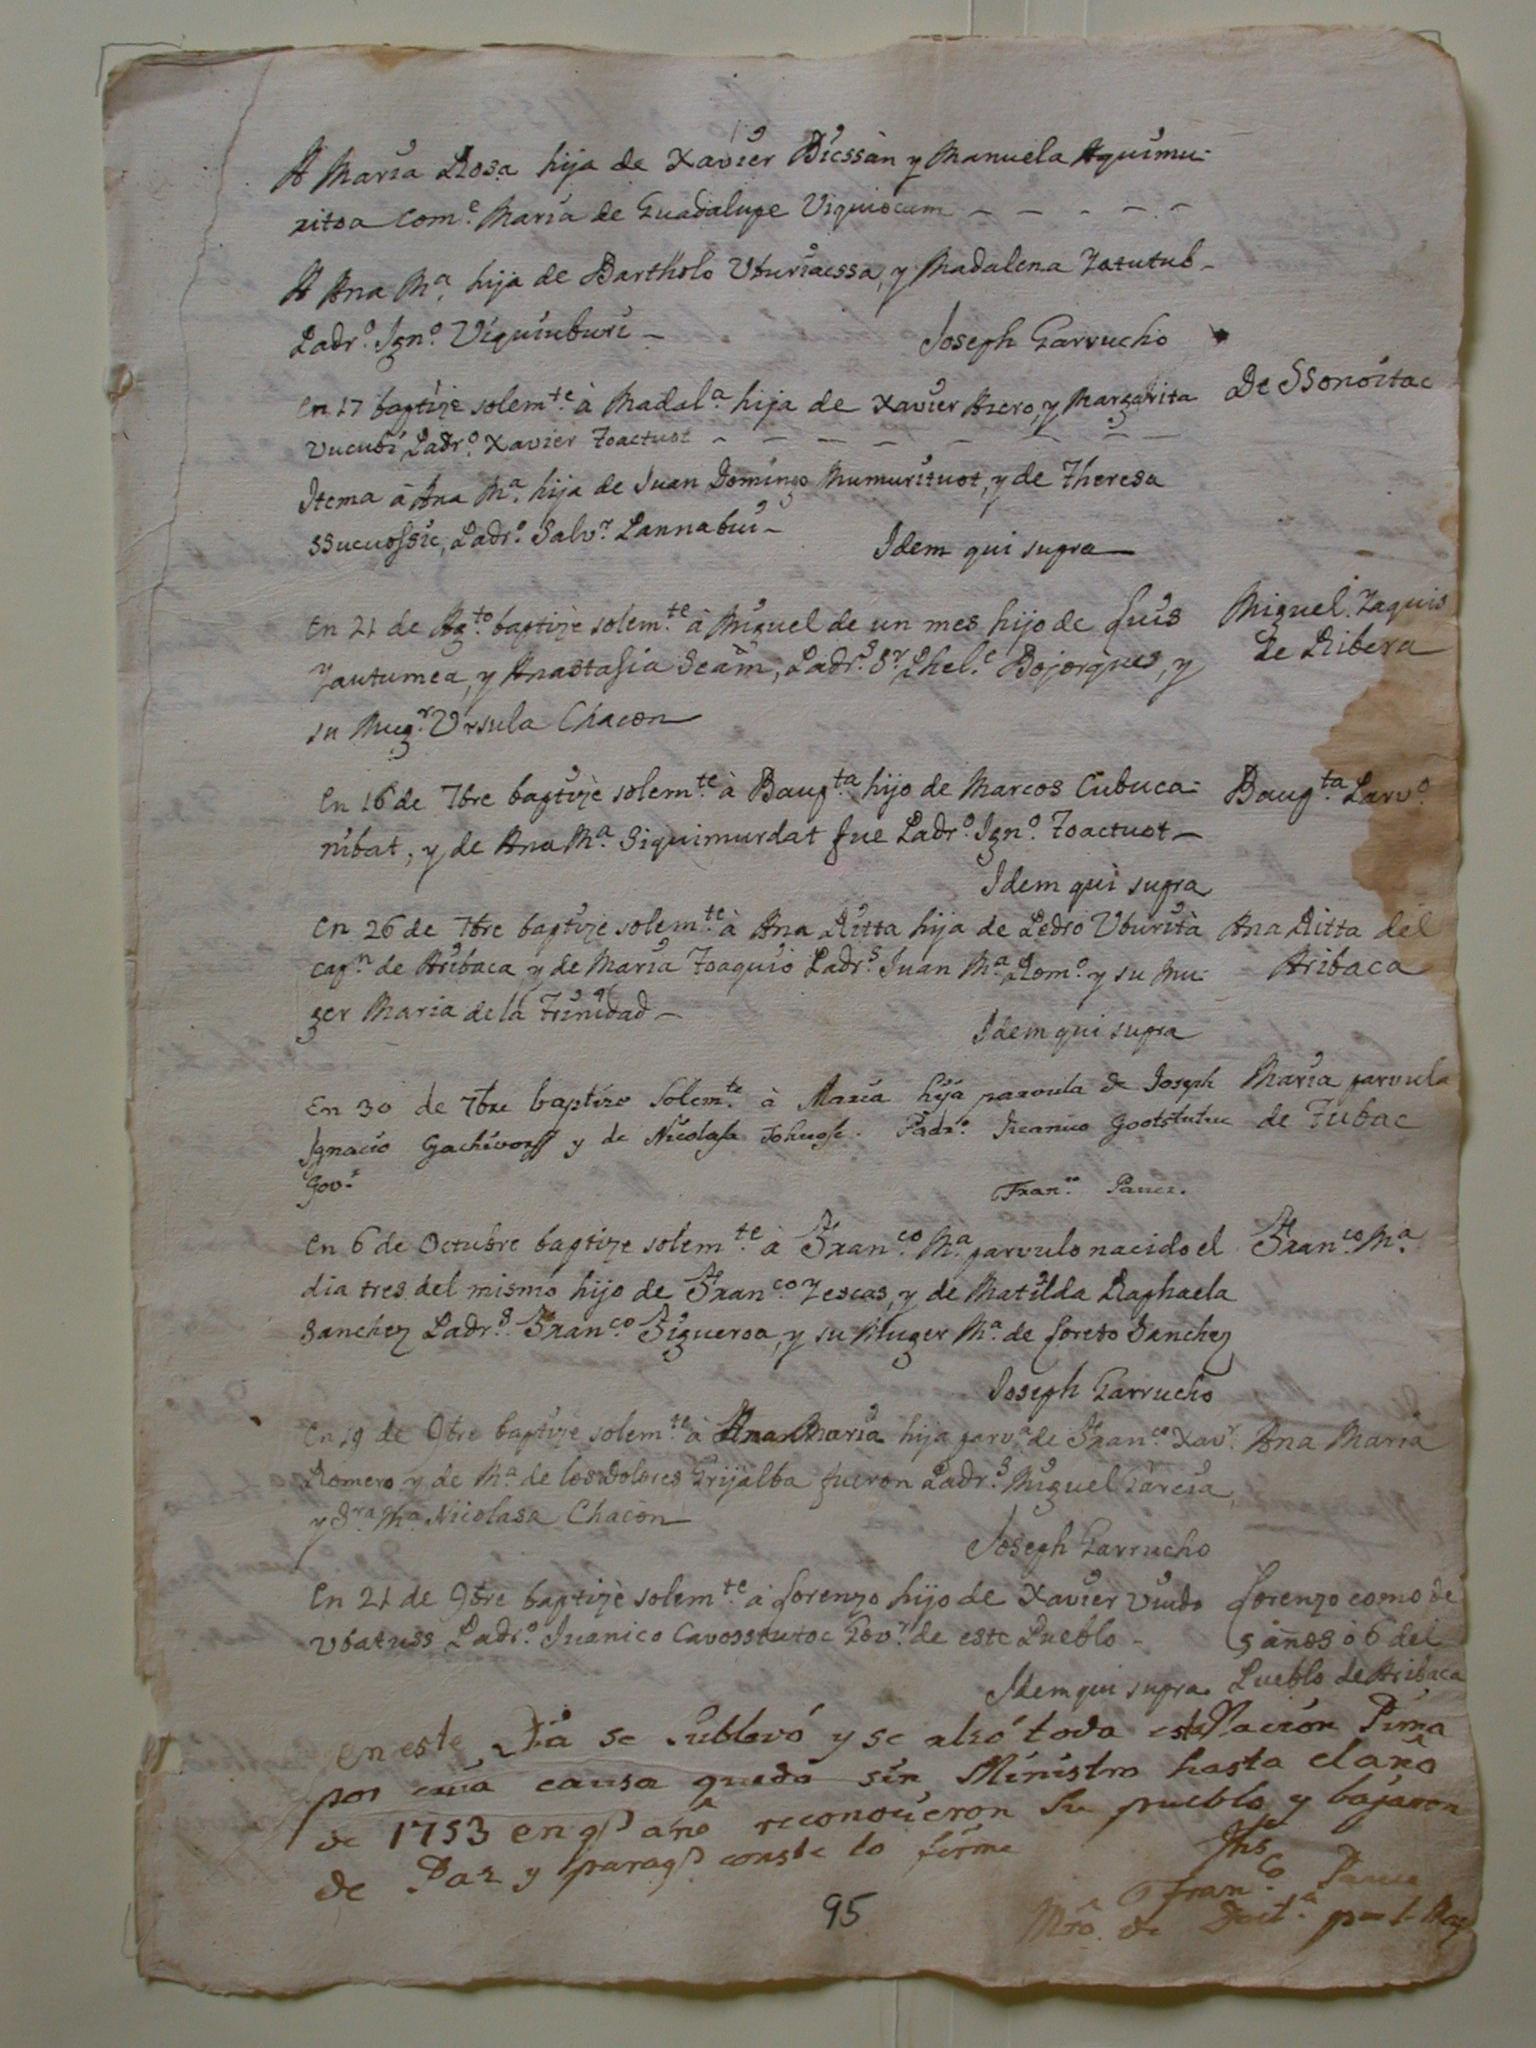 A Maria Rosa hija de Xavier Bicssàn y Manuela Aquimu-
ritoa Com.e Maria de Guadalupe Viquiocam - - - - -
A Ana M.a hija de Bartholo Vburiaessa, y Madalena Tatutub-
Padr.o Ign.o Viquiuburi -
Joseph Garrucho
De SSonoitac
En 17 baptize solem.te à Madal.a hija de Xavier Azero, y Margarita
Vucubi, Padr.o Xavier Toactuot - - - - - - - -
Itema à Ana M.a hija de Juan Domingo Mumurituot, y de Theresa
SSucuossic, Padr.o Salv.r Pannabui -
Idem qui supra
Miguel. Yaquis
de Ribera
En 21 de Ag.to baptizè solem.te à Miguel de un mes hijo de Luis
Yautumea, y Anastasia Seam, Padr.s Sr. Phel.e Bojorques, y
su Mug.r Vrsula Chacon
Baup.ta Parv.o
En 16 de 7bre baptizè solem.te à Baup.ta hijo de Marcos Cubuca-
nibat, y de Ana M.a Siquimurdat fue Padr.o Ign.o Toactuot -
Idem qui supra
Ana Ritta del
Aribaca
En 26 de 7bre baptize solem.te à Ana Ritta hija de Pedro Vburità
cap.n de Aribaca y de Maria Toaquio Padr.s Juan M.a Rom.o y su Mu-
ger Maria de la Trinidad -
Idem qui supra
Maria parvula
de Tubac
En 30 de 7bre baptizo Solem.te à Maria hija parvula de Joseph
Ignacio Gachivoaff y de Nicolasa Tohuose. Padr.o Juanico Gootstutuc
Gov.r
Fran.co Pauer.
Fran.co M.a
En 6 de Octubre baptize solem.te à Fran.co M.a parvulo nacido el
dia tres del mismo hijo de Fran.co Yescas, y de Matilda Raphaela
Sanchez Padr.s Fran.co Figueroa, y su Muger M.a de Loreto Sanchez
Joseph Garrucho
Ana Maria
En 19 de 9bre baptizè solem.te à Ana Maria hija parv.a de Fran.co Xav.r
Romero y de M.a de los Dolores Grijalba fueron Padr.s Miguel Garcia,
y Sra. M.a Nicolasa Chacòn
Joseph Garrucho
Lorenzo como de
5 años ò 6 del
Pueblo de Aribaca
En 21 de 9bre baptizè solem.te à Lorenzo hijo de Xavier Viudo
Vbatuss Padr.o Juanico Cavosstutoc Gov.r de este Pueblo -
Idem qui supra.
en este Dia se Sublevó y se alsó toda esta Nacion Pima
por cuia causa quedò sin Ministro hasta el año
de 1753 en q.e año reconocieron Su pueblo y bajaron
de Paz y para q.e conste lo firme
Jhs
Fran.co Pauer
Mro. de Doct.a por S. Mag
95